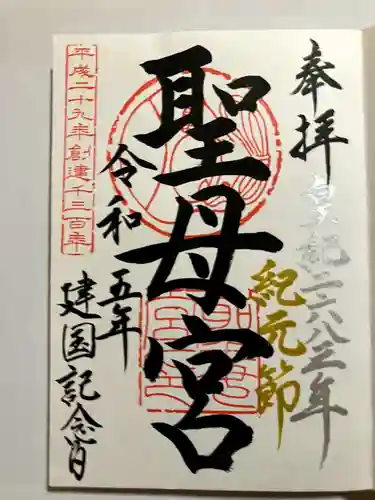 奉拝
皇紀二六八三年
紀元節
聖母宮
令和五年
建国記念日
平成二十九年創建千三百年